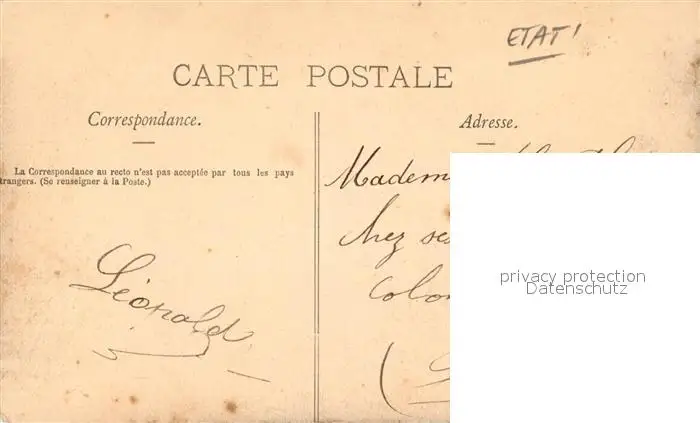 ETAT!
CARTE POSTALE
Correspondance.
Adresse.
La Correspondance au recto n'est pas acceptée par tous les pays
trangers. (Se renseigner à la Poste.)
Madem
chez ses
Léopold
privacy protection
Datenschutz